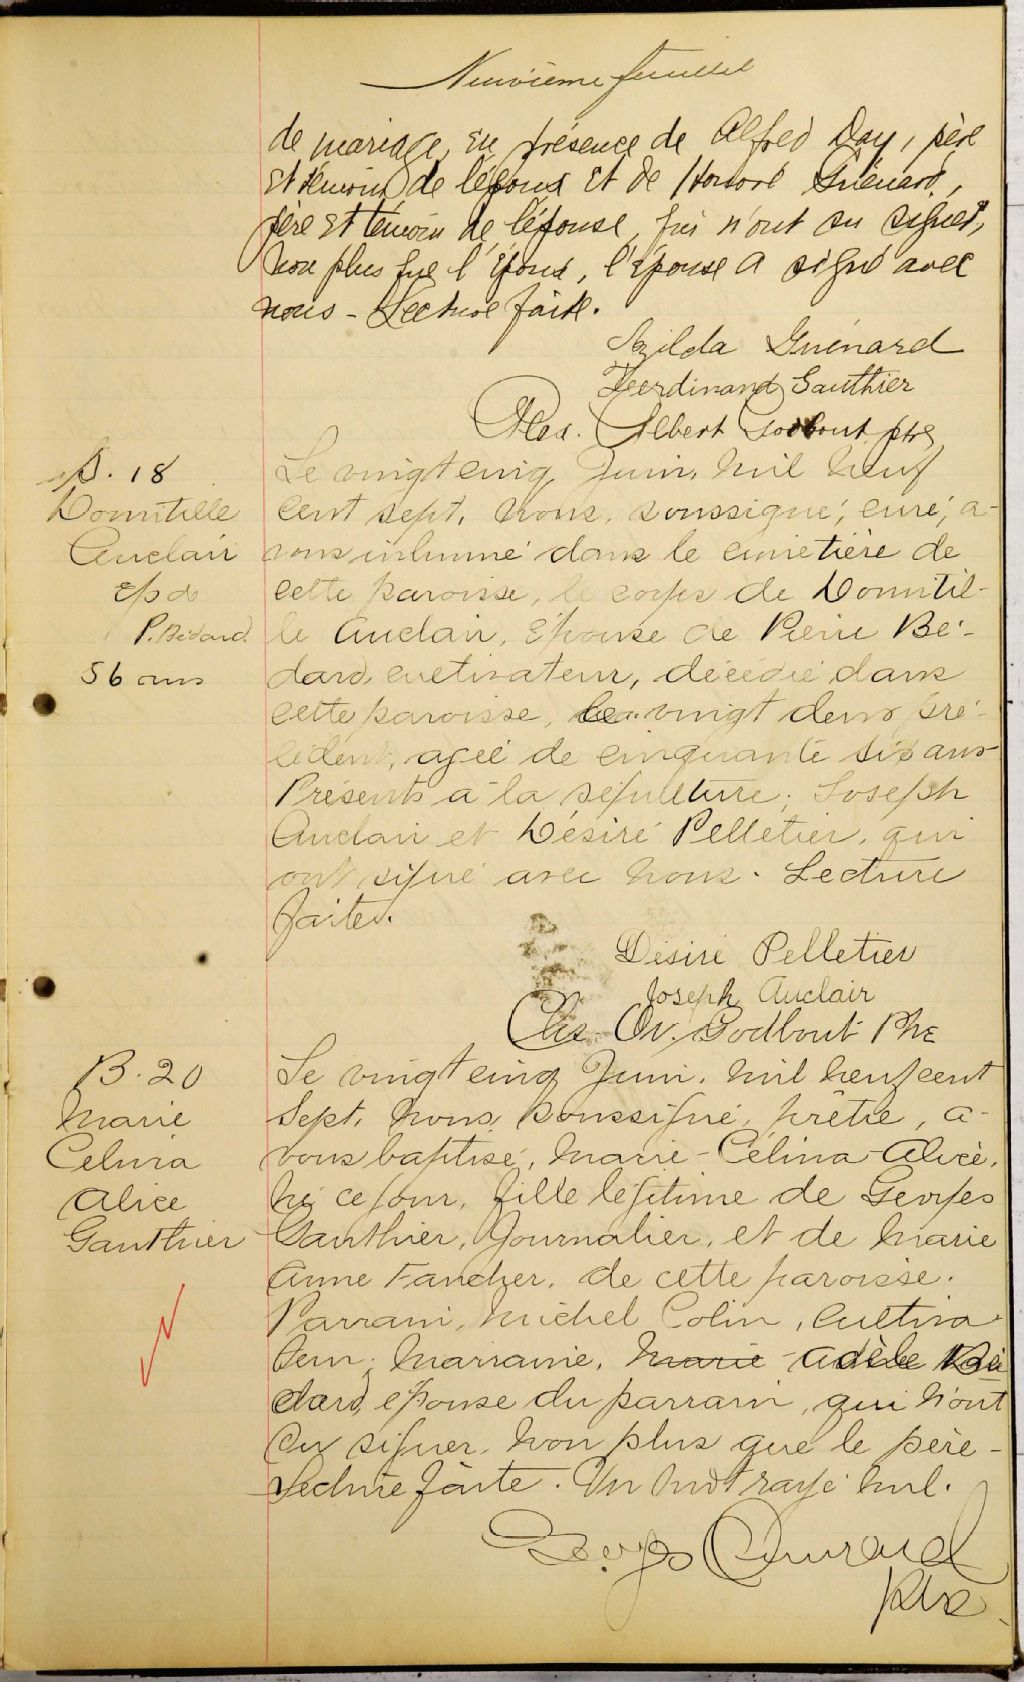 Neuvième feuillet
de mariage, en présence de Alfred Day, père
et témoin de l'époux et de Honoré Guénard,
père et témoin de l'épouse, qui n'ont su signer,
non plus que l'époux, l'épouse a signé avec
nous - Lecture faite.
Azilda Guénard
Ferdinand Gauthier
Albert Godbout ptre
S. 18
Domitille
Auclair
Ep de
P. Bédard
56 ans
Le vingt cinq Juin, mil neuf
cent sept, nous, soussigné, curé, a-
vons inhumé dans le cimetière de
cette paroisse, le corps de Domitil-
le Auclair, épouse de Pierre Bé-
dard, cultivateur, décédée dans
cette paroisse, le vingt deux pré-
cédent, agée de cinquante six ans
Présents à la sépulture; Joseph
Auclair et Désiré Pelletier, qui
ont signé avec nous. Lecture
faite.
Désiré Pelletier
Joseph Auclair
Chs Ov. Godbout Ptre
B. 20
Marie
Celina
Alice
Gauthier
Le vingt cinq Juin, mil neuf cent
Sept, nous, soussigné, prêtre, a-
vons baptisé, Marie-Célina-Alice,
né ce jour, fille légitime de Georges
Gauthier, Journalier, et de Marie
Anne Faucher, de cette paroisse.
Parrain, Michel Colin, Cultiva
teur; Marraine, Marie Adèle Bé
dard, épouse du parrain, qui n'ont
su signer, non plus que le père -
Lecture faite. Un mot rayé nul.
Georges Ptre